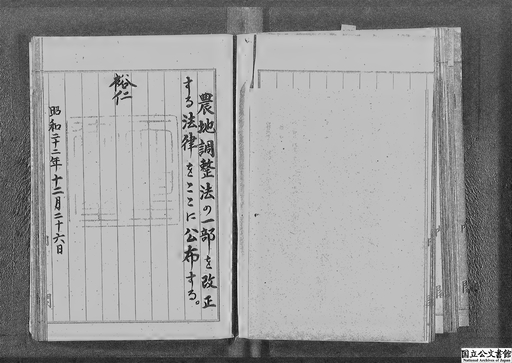 農地調整法の一部を改正
する法律をここに公布する。
裕仁
昭和二十二年十二月二十六日
国立公文書館
National Archives of Japan